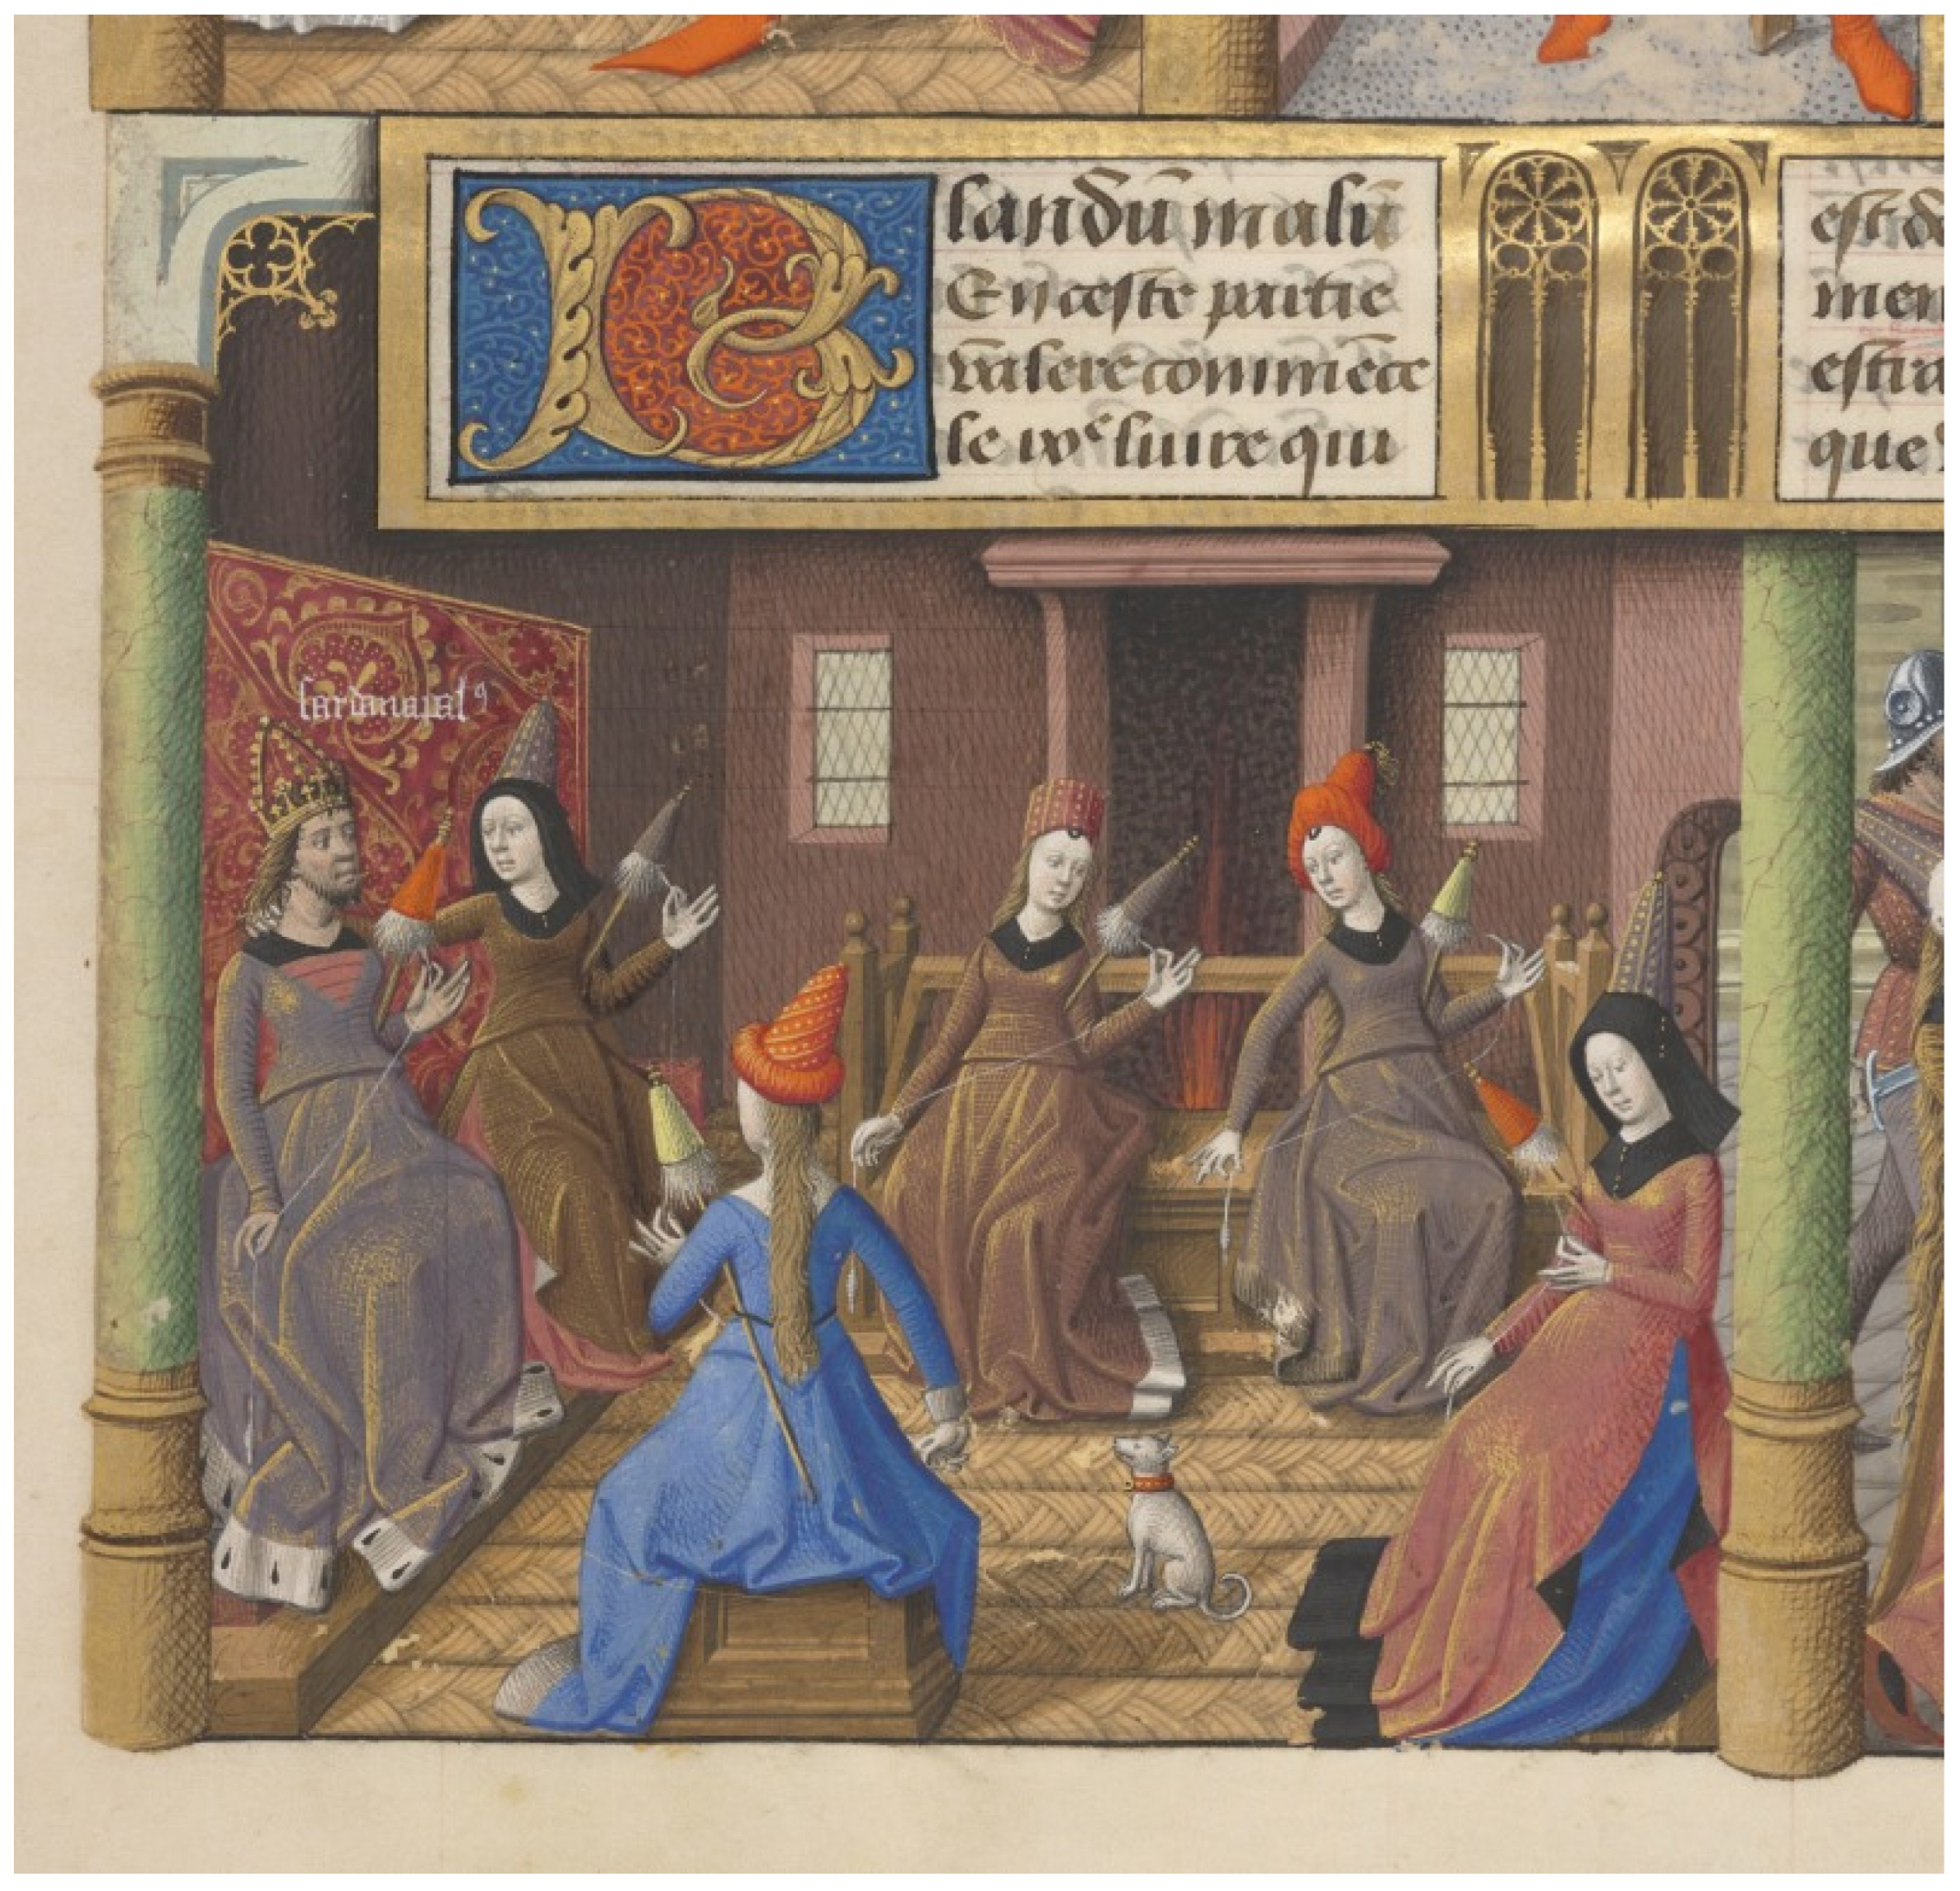 Blandū malū
En ceste partie
valere cōmmēce
le ixᵉ liure qui
est de
men
estra
que
sardanapalꝰ